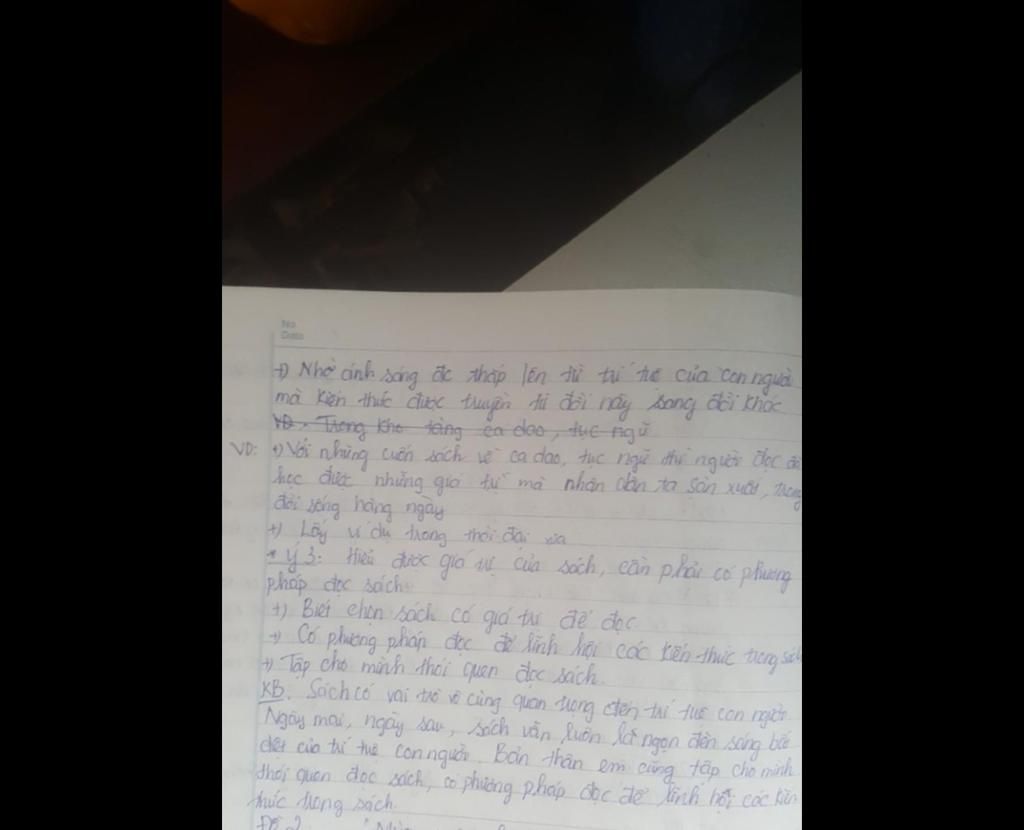 No
Date
+) Nhờ ánh sáng đc thắp lên từ trí tuệ của con người
mà kiến thức được truyền từ đời này sang đời khác
VD: Trong kho tàng ca dao, tục ngữ
VD: +) Với những cuốn sách về ca dao, tục ngữ thì người đọc đã
học được những giá trị mà nhân dân ta sản xuất, trong
đời sống hàng ngày
+) Lấy ví dụ trong thời đại xưa
* Ý 3: Hiểu được giá trị của sách, cần phải có phương
pháp đọc sách
+) Biết chọn sách có giá trị để đọc
+) Có phương pháp đọc để lĩnh hội các kiến thức trong sách
+) Tập cho mình thói quen đọc sách.
KB. Sách có vai trò vô cùng quan trọng đến trí tuệ con người
Ngày mai, ngày sau, sách vẫn luôn là ngọn đèn sáng bất
diệt của trí tuệ con người. Bản thân em cũng tập cho mình
thói quen đọc sách, có phương pháp đọc để lĩnh hội các kiến
thức trong sách.
Đề 2